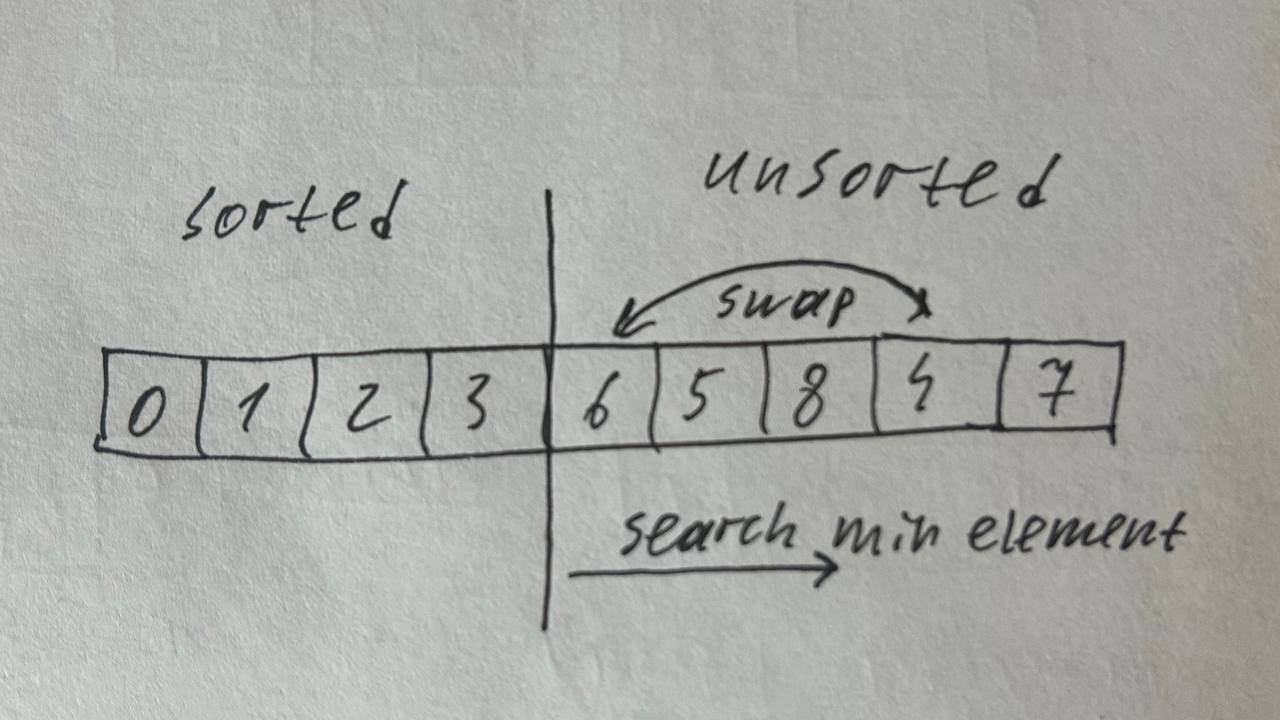 sorted
unsorted
swap
0 1 2 3 6 5 8 4 7
search min element